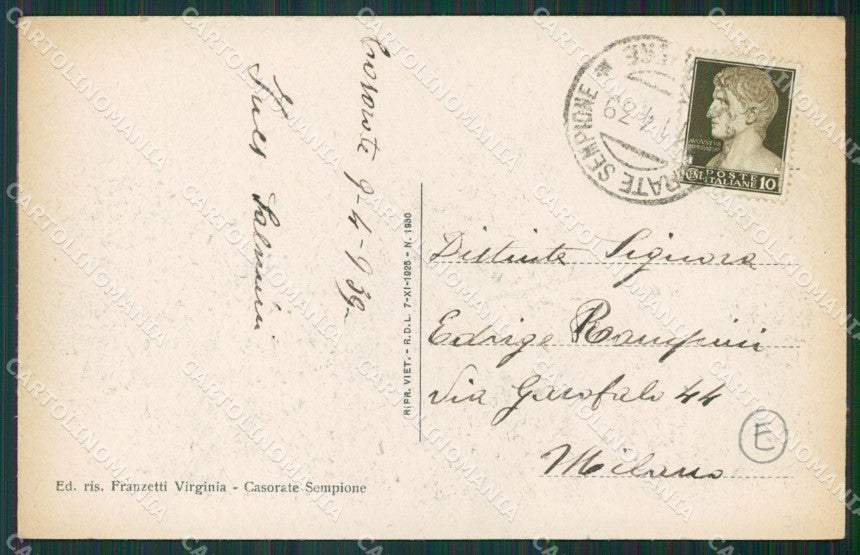 Casorate 9-4-939-
Salvini
RIPR. VIET. - R.D.L. 7-XI-1925 - N. 1930
CASORATE SEMPIONE
AVGVSTVS
IMPERATOR
POSTE
ITALIANE 10
Distinta Signora
Edvige Rampini
Via Garofalo 44
Milano
E
Ed. ris. Franzetti Virginia - Casorate Sempione
CARTOLINOMANIA